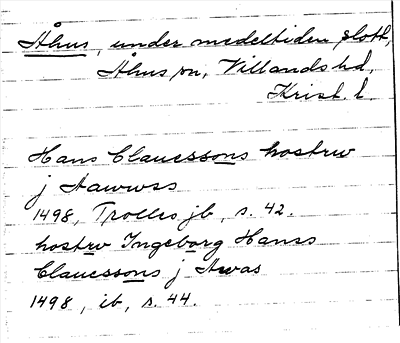 Åhus, under medeltiden slott,
Åhus sn, Villands hd,
Krist. l.
Hans Clauessons hostrw
j Aawwss
1498, Trolles jb, s. 42.
hostrw Ingeborg Hanss
Clauessons j Awas
1498, ib, s. 44.